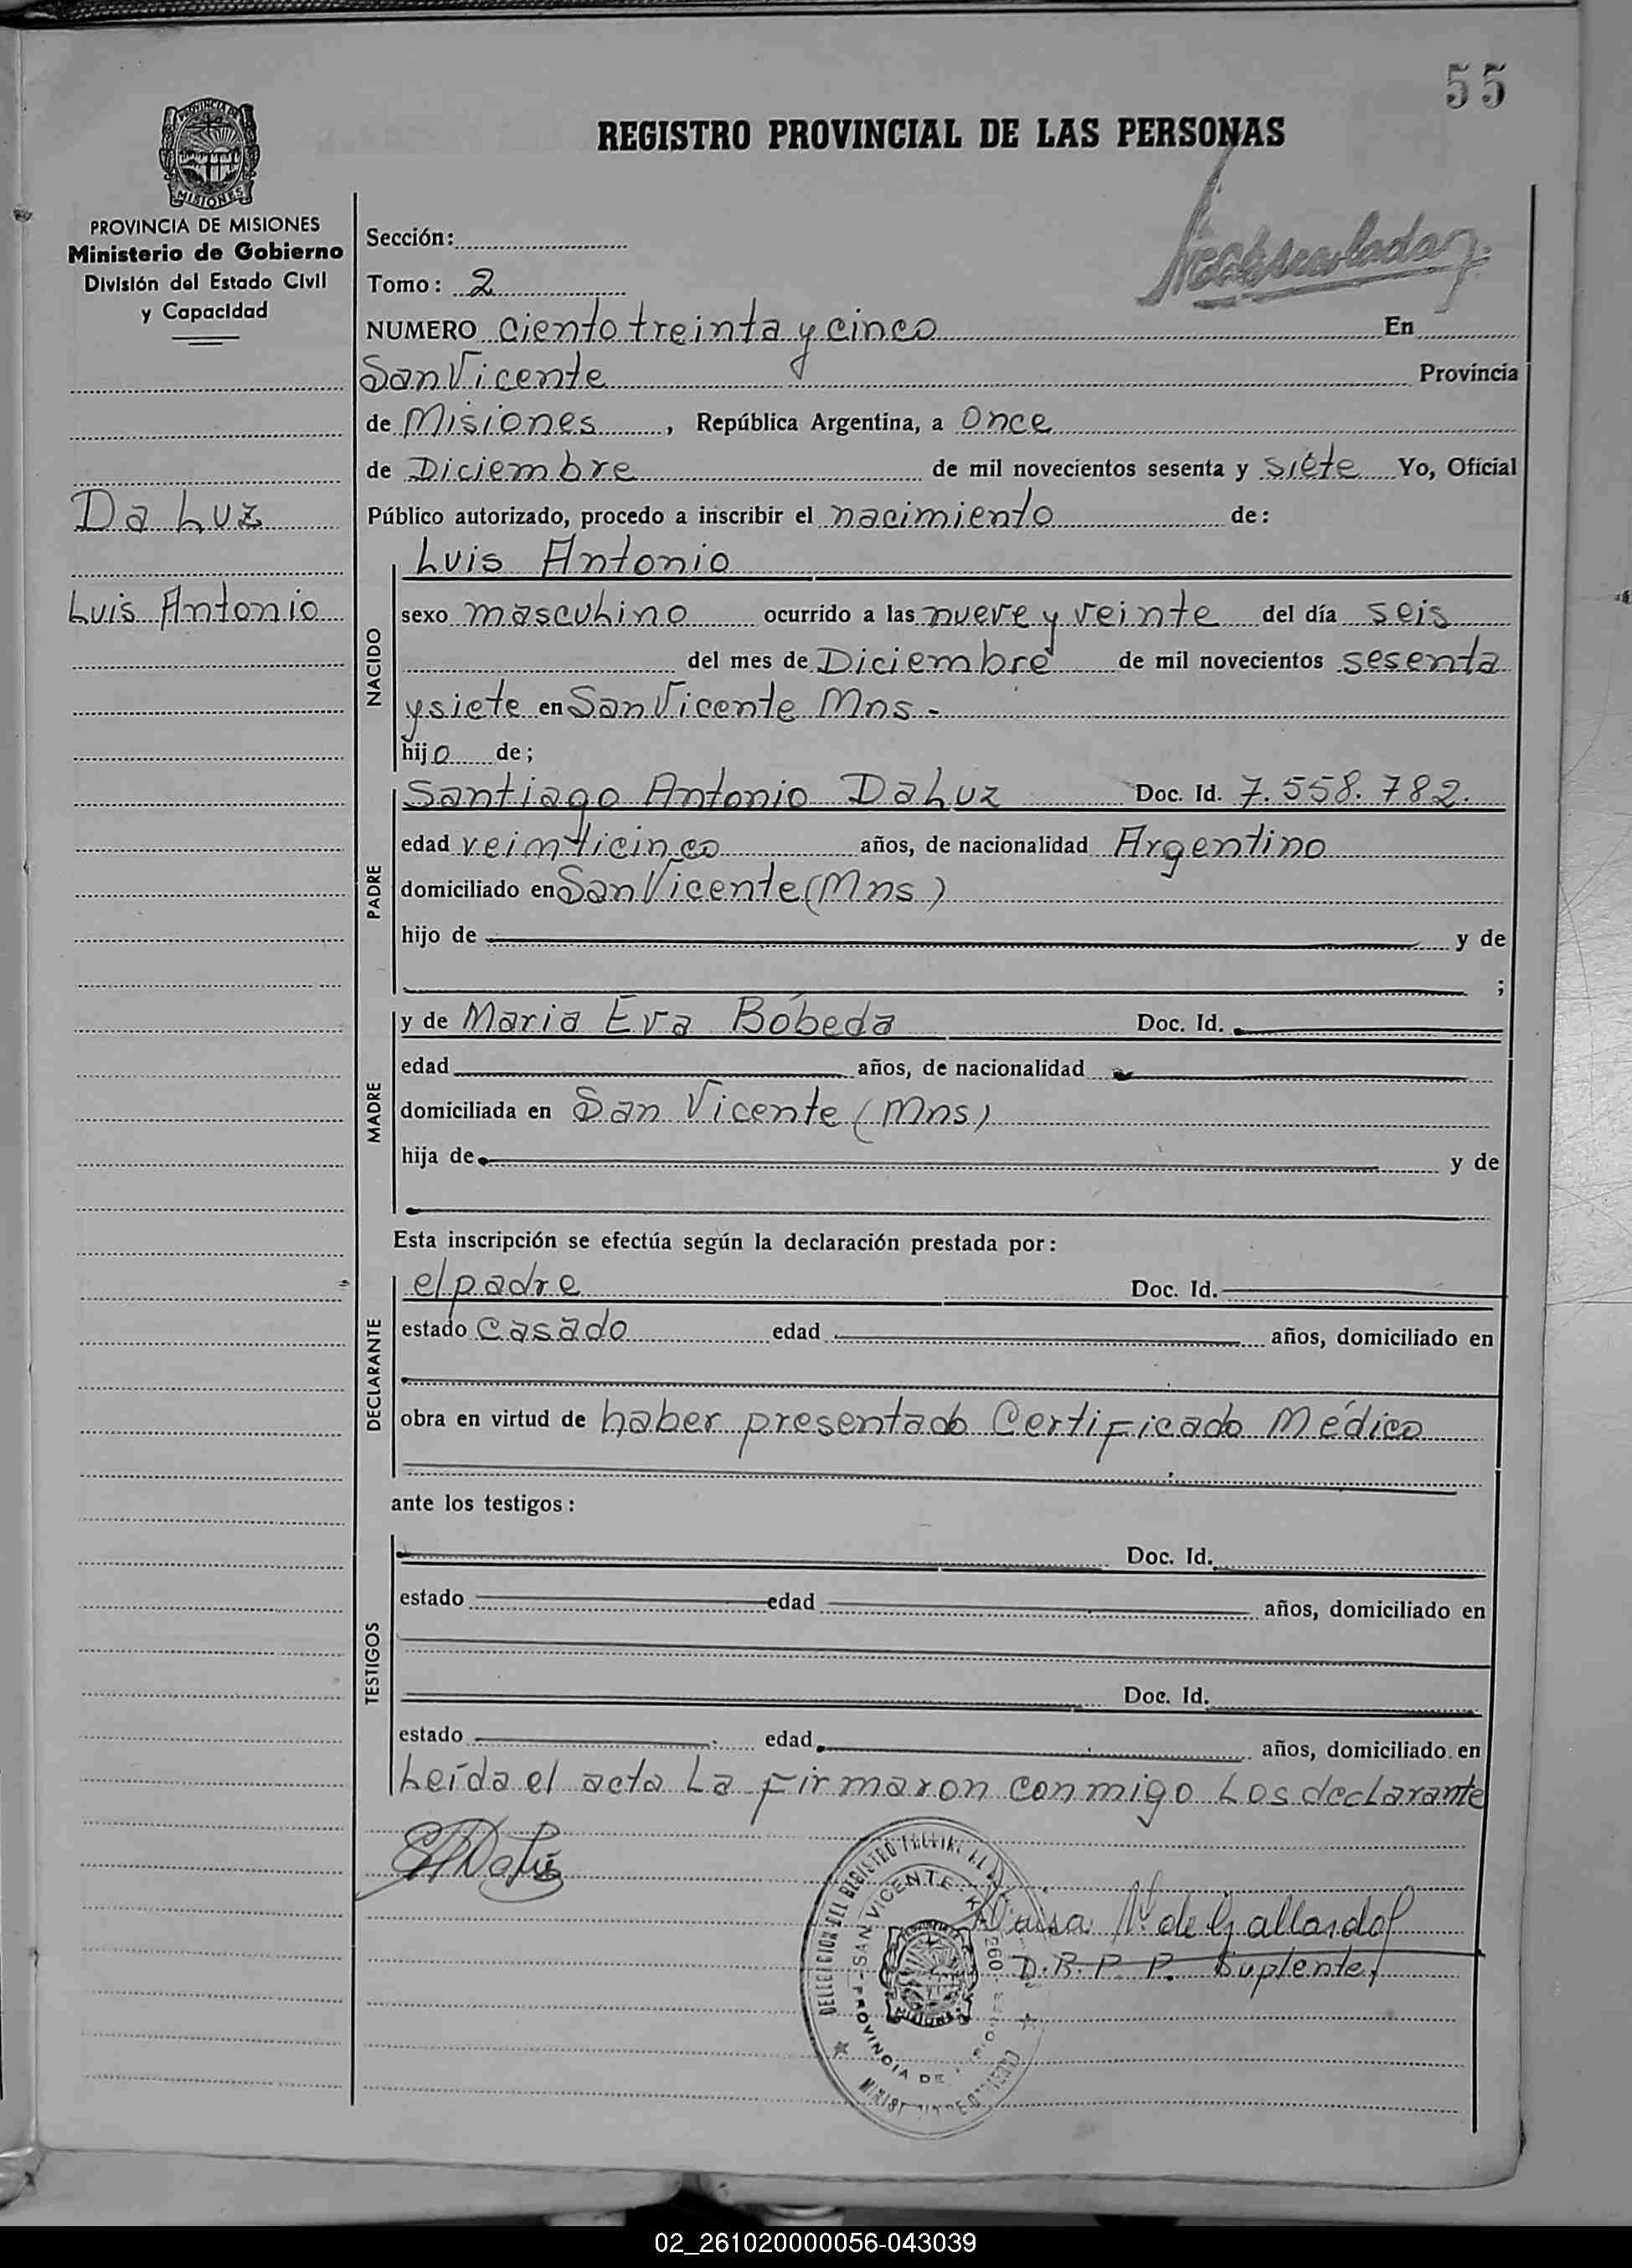 55
REGISTRO PROVINCIAL DE LAS PERSONAS
PROVINCIA DE MISIONES
Ministerio de Gobierno
División del Estado Civil
y Capacidad
Da Luz
Luis Antonio
Sección:
Tomo: 2
NUMERO ciento treinta y cinco En
San Vicente Provincia
de Misiones, República Argentina, a Once
de Diciembre de mil novecientos sesenta y siéte Yo, Oficial
Público autorizado, procedo a inscribir el nacimiento de:
NACIDO
Luis Antonio
sexo masculino ocurrido a las nueve y veinte del día seis
del mes de Diciembre de mil novecientos sesenta
y siete en San Vicente Mns -
hijo de;
PADRE
Santiago Antonio Da Luz Doc. Id. 7.558.782.
edad veinticinco años, de nacionalidad Argentino
domiciliado en San Vicente (Mns)
hijo de y de
;
MADRE
y de Maria Eva Bóbeda Doc. Id.
edad años, de nacionalidad
domiciliada en San Vicente (Mns)
hija de y de
Esta inscripción se efectúa según la declaración prestada por:
DECLARANTE
el padre Doc. Id.
estado Casado edad años, domiciliado en
obra en virtud de haber presentado Certificado Médico
ante los testigos:
TESTIGOS
Doc. Id.
estado edad años, domiciliado en
Doc. Id.
estado edad años, domiciliado en
Leída el acta La firmaron conmigo Los declarante
SAN VICENTE
PROVINCIA DE
N. de Gallardo
D.R.P.P. Suplente
02_261020000056-043039